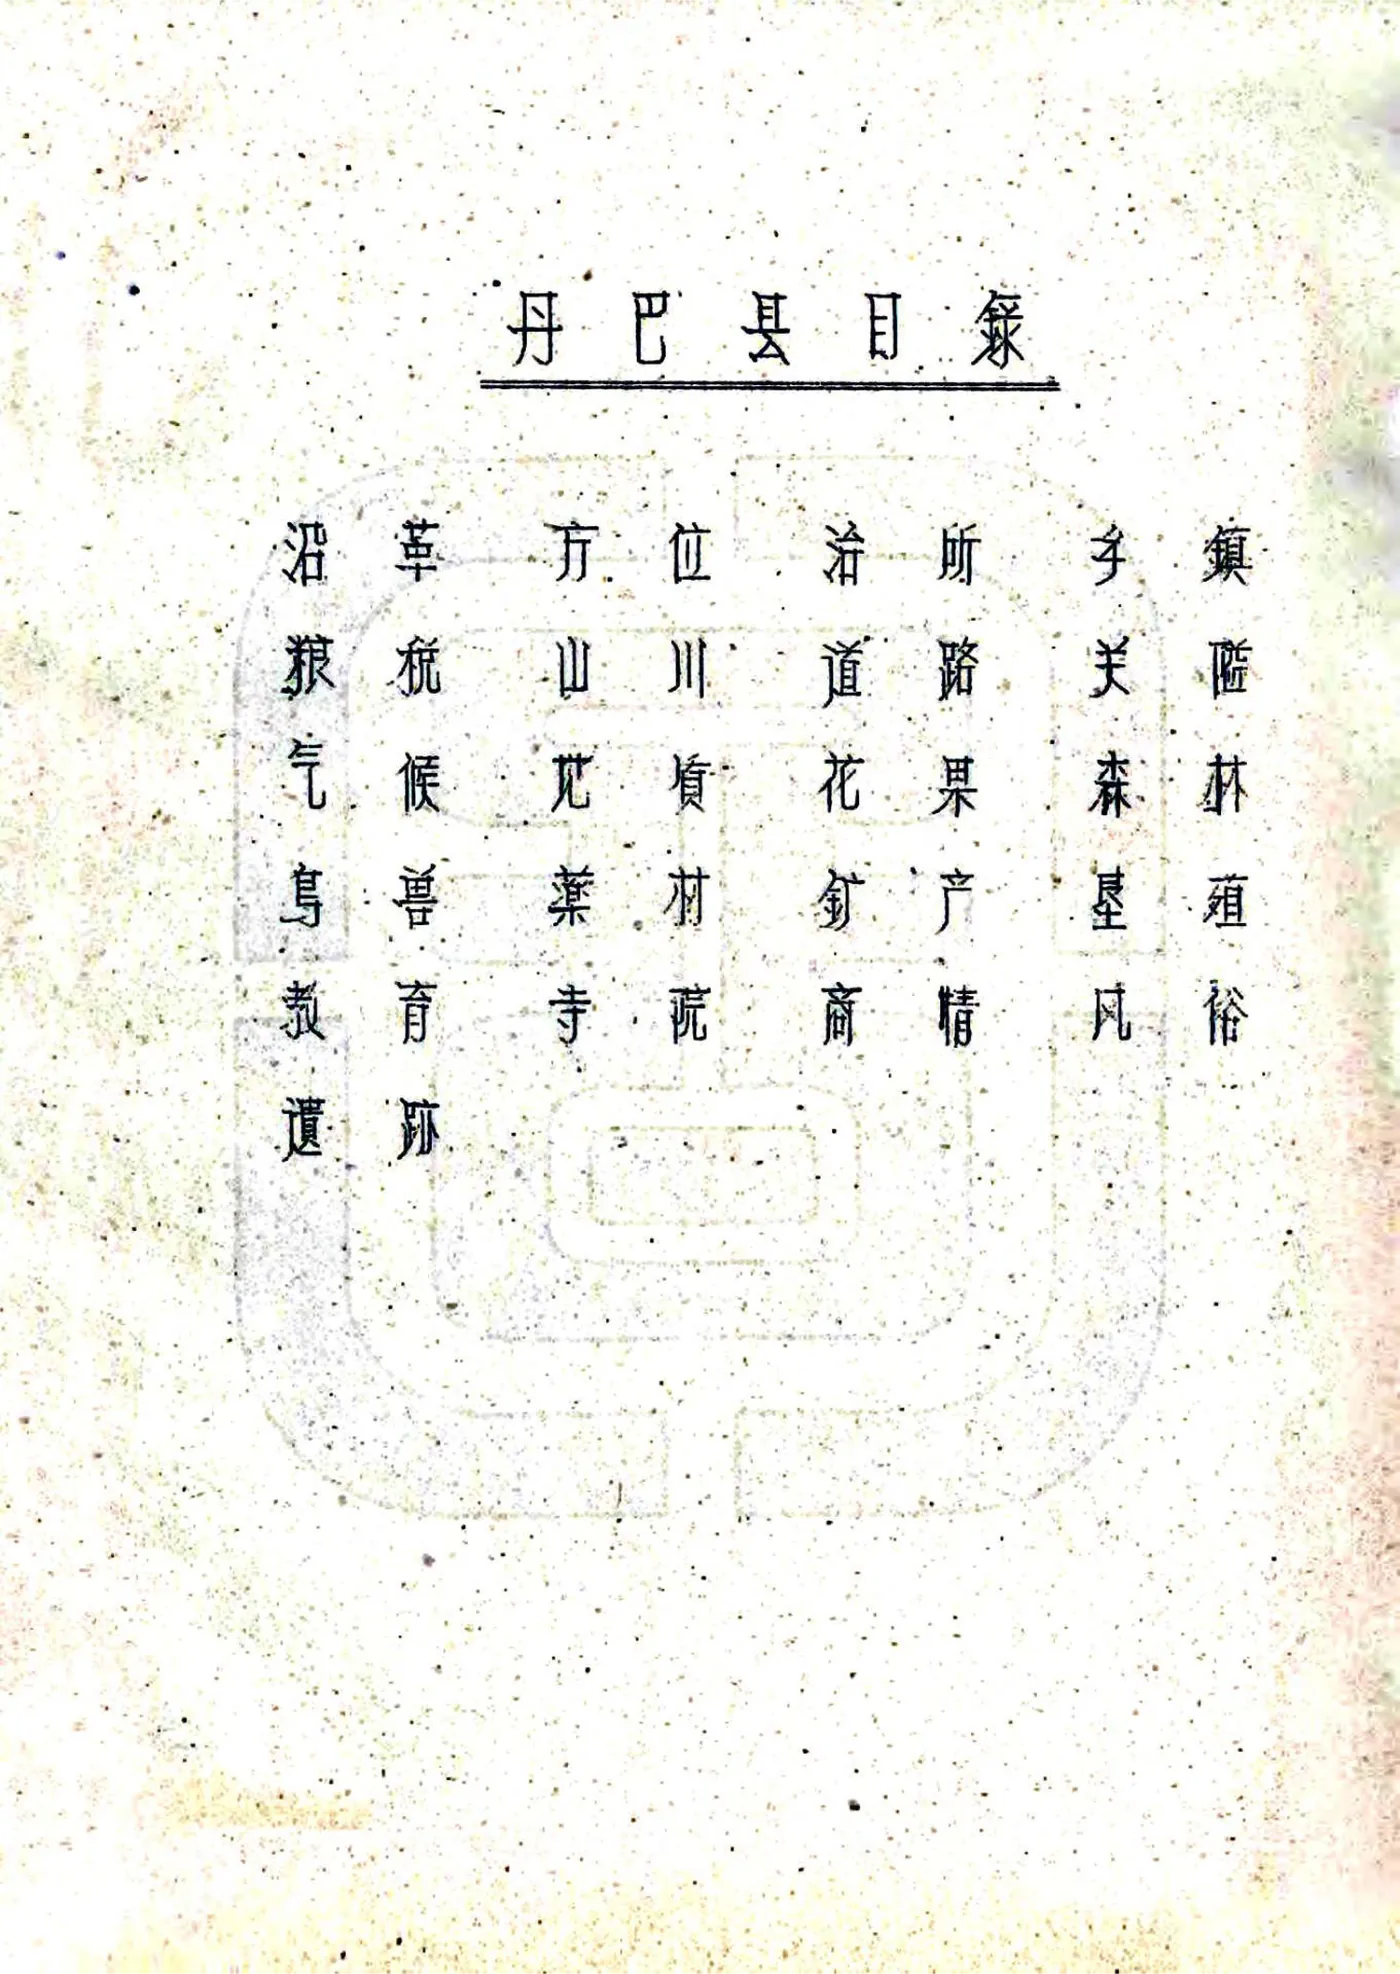 丹巴县目錄
沿革 方位 治所 乡鎮
粮税 山川 道路 关隘
气候 地質 花果 森林
鳥兽 薬材 矿产 垦殖
教育 寺院 商情 风俗
遺跡